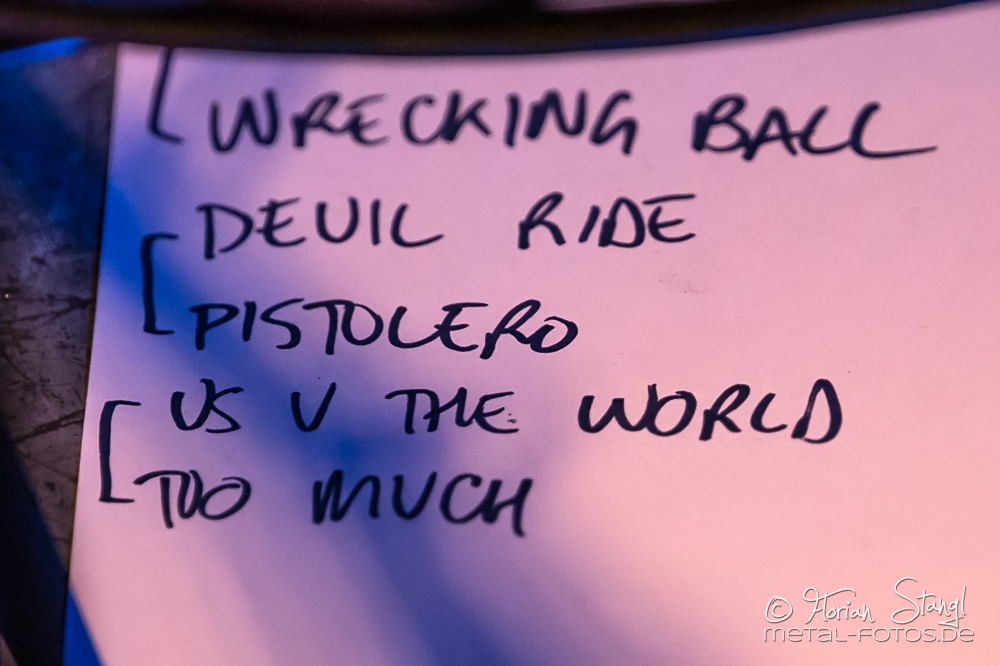 WRECKING BALL
DEVIL RIDE
PISTOLERO
US V THE WORLD
TOO MUCH
© Florian Stangl
METAL-FOTOS.DE